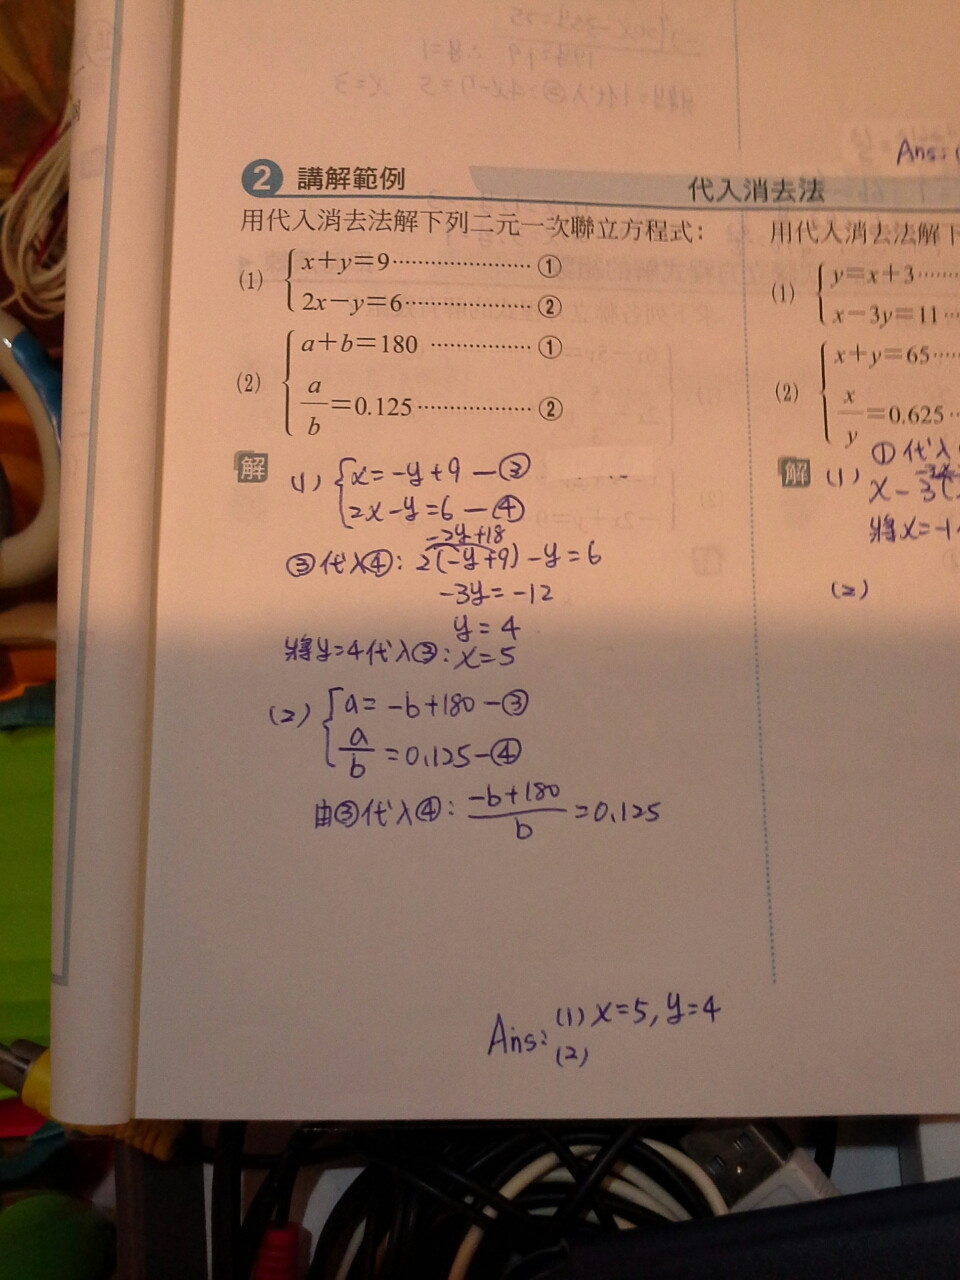 Ans: (
2 講解範例
代入消去法
用代入消去法解下列二元一次聯立方程式：
(1) x+y=9……………………①
2x−y=6……………………②
(2) a+b=180………………①
a/b=0.125………………②
解 (1) x=-y+9 —③
2x-y=6 —④
-2y+18
③代入④: 2(-y+9)-y=6
-3y=-12
y=4
將y=4代入③: x=5
(2) a=-b+180 —③
a/b=0.125 —④
由③代入④: -b+180/b=0.125
Ans: (1) x=5, y=4
(2)
用代入消去法解
(1) y=x+3……
x−3y=11…
(2) x+y=65……
x/y=0.625…
解 (1) ①代入
x-3(
將x=-1
(2)